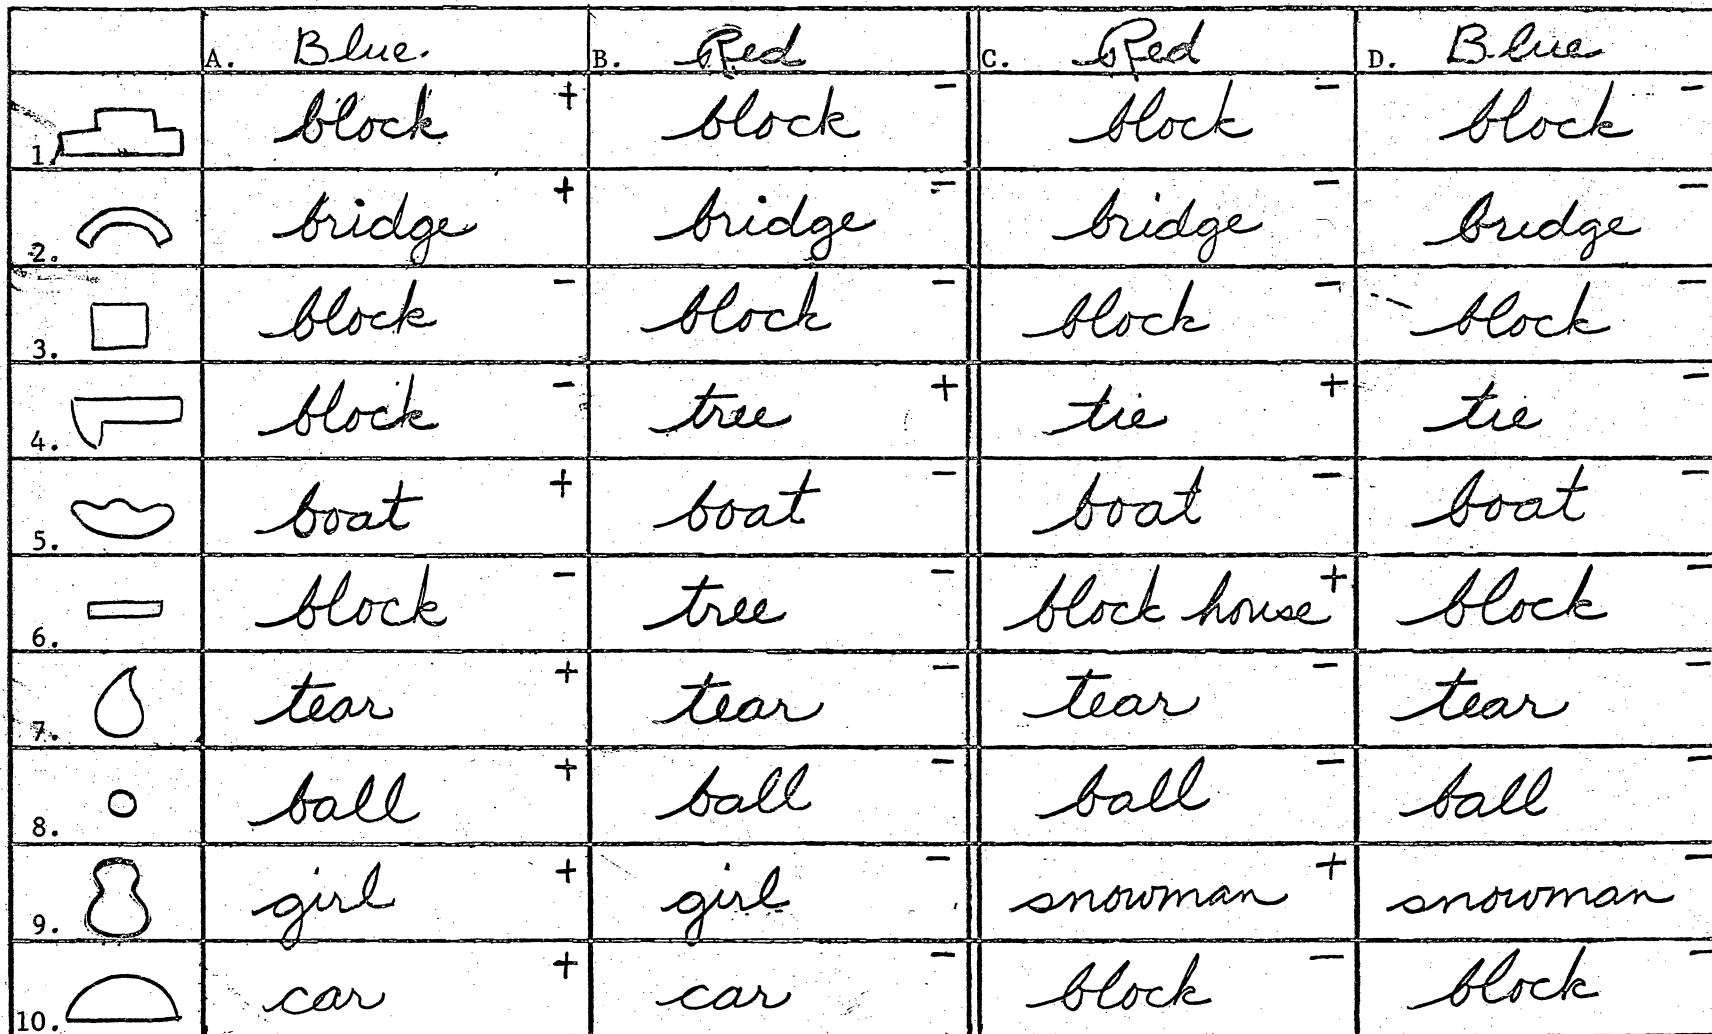 A. Blue. B. Red C. Red D. Blue
1. block + block - block - block -
2. bridge + bridge - bridge - bridge -
3. block - block - block - block -
4. block - tree + tie + tie -
5. boat + boat - boat - boat -
6. block - tree - block house + block -
7. tear + tear - tear - tear -
8. ball + ball - ball - ball -
9. girl + girl - snowman + snowman -
10. car + car - block - block -